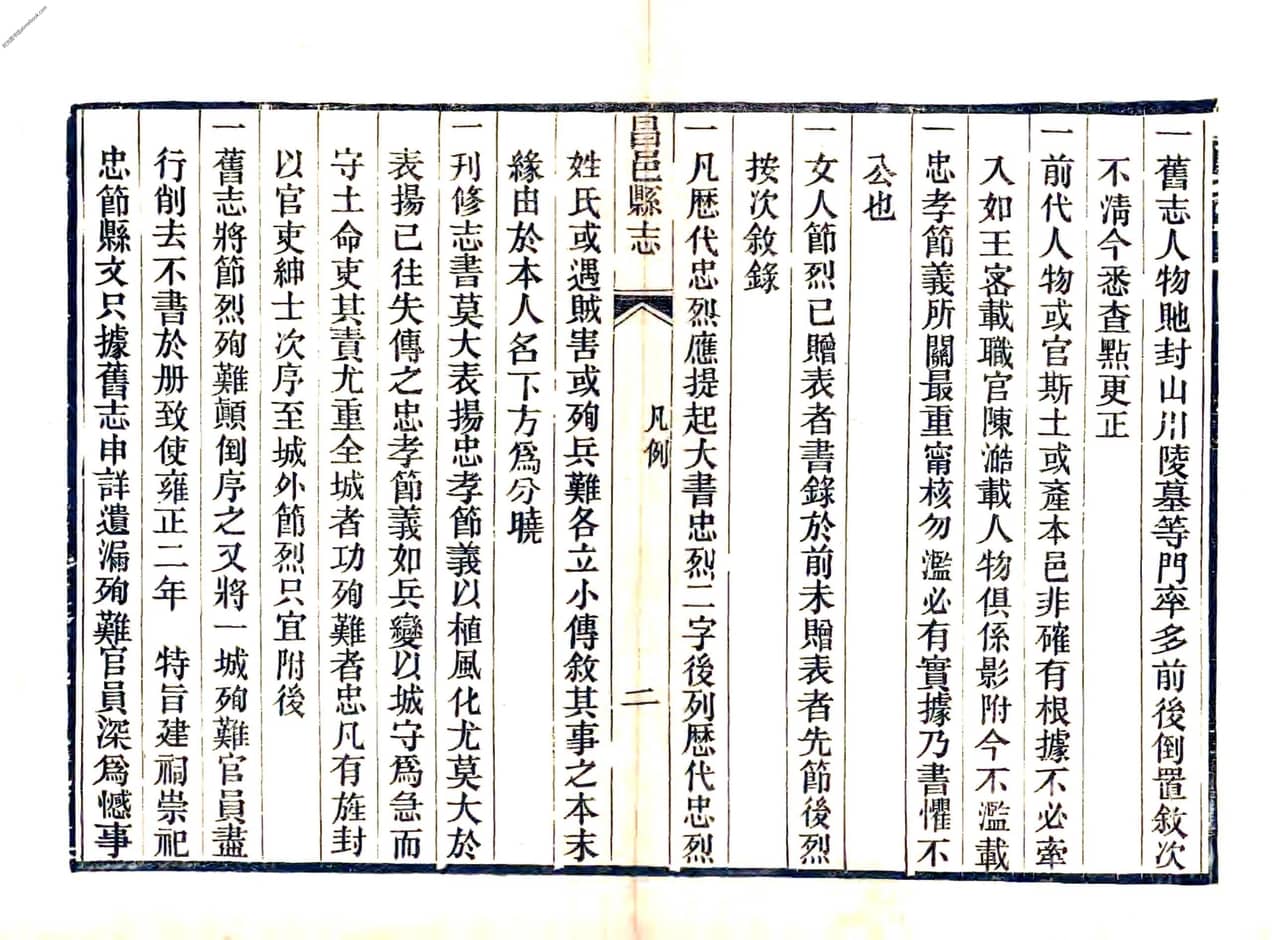 一舊志人物貤封山川陵墓等門率多前後倒置敘次
不淸今悉查點更正
一前代人物或官斯土或產本邑非確有根據不必牽
入如王密載職官陳澔載人物俱係影附今不濫載
一忠孝節義所關最重甯核勿濫必有實據乃書懼不
公也
一女人節烈已贈表者書錄於前未贈表者先節後烈
按次敘錄
一凡歷代忠烈應提起大書忠烈二字後列歷代忠烈
昌邑縣志
凡例
二
姓氏或遇賊害或殉兵難各立小傳敘其事之本末
緣由於本人名下方爲分曉
一刊修志書莫大表揚忠孝節義以植風化尤莫大於
表揚已往失傳之忠孝節義如兵變以城守爲急而
守土命吏其責尤重全城者功殉難者忠凡有旌封
以官吏紳士次序至城外節烈只宜附後
一舊志將節烈殉難顛倒序之又將一城殉難官員盡
行削去不書於册致使雍正二年　特旨建祠崇祀
忠節縣文只據舊志申詳遺漏殉難官員深爲憾事